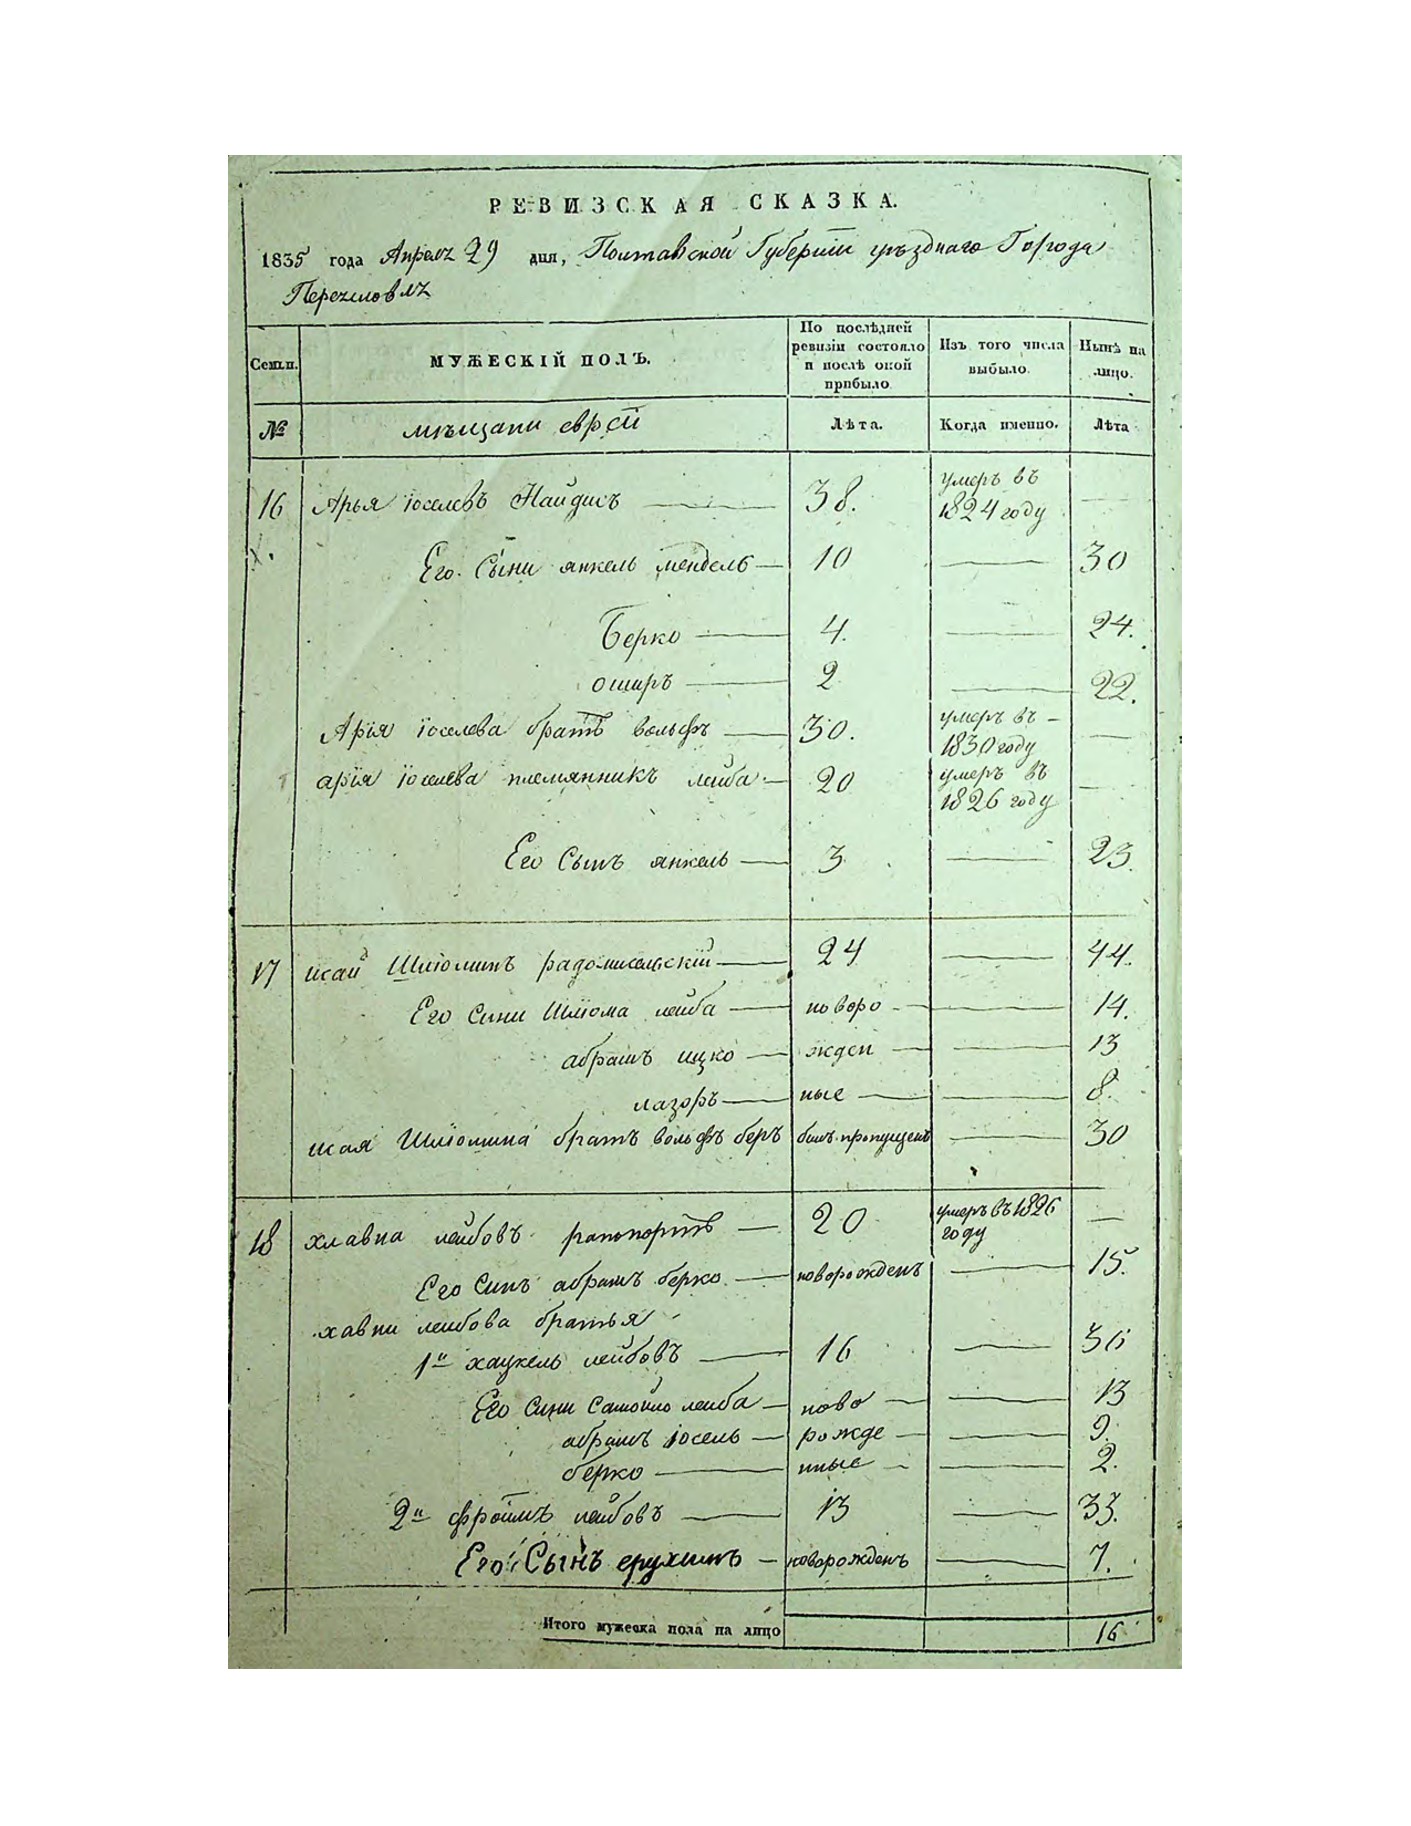 РЕВИЗСКАЯ СКАЗКА.
1835 года Апреля 29 дня, Полтавской Губернии уѣзднаго Города
Переяславля
Семьи. МУЖЕСКІЙ ПОЛЪ. По послѣдней ревизіи состояло и послѣ оной прибыло Изъ того числа выбыло. Нынѣ на лицо.
№ мѣщани еврей Лѣта. Когда именно. Лѣта
16 Арья іоселевъ Найдисъ 38. умеръ въ 1824 году
Его Сыни янкель мендель 10 30
Берко 4. 24.
оширъ 2 22.
Арія іоселева братъ вольфъ 30. умеръ въ 1830 году
арія іоселева племянникъ лейба 20 умеръ въ 1826 году
Его Сынъ янкель 3 23.
17 исай Шліоминъ радомисельскій 24 44.
Его Сини Шліома лейба новоро 14.
абрамъ ицко жден 13
лазоръ ные 8.
исая Шліомина братъ вольфъ беръ билъ пропущенъ 30
18 хлавна лейбовъ рапопортъ 20 умеръ въ 1826 году
Его Синъ абрамъ берко новорожденъ 15.
хавни лейбова братья
1й хацкель лейбовъ 16 36
Его Сини Самойло лейба ново 13
абрамъ іосель рожде 9.
берко нные 2.
2й фроимъ лейбовъ 13 33.
Его Сынъ ерухимъ новорожденъ 7.
Итого мужеска пола на лицо 16